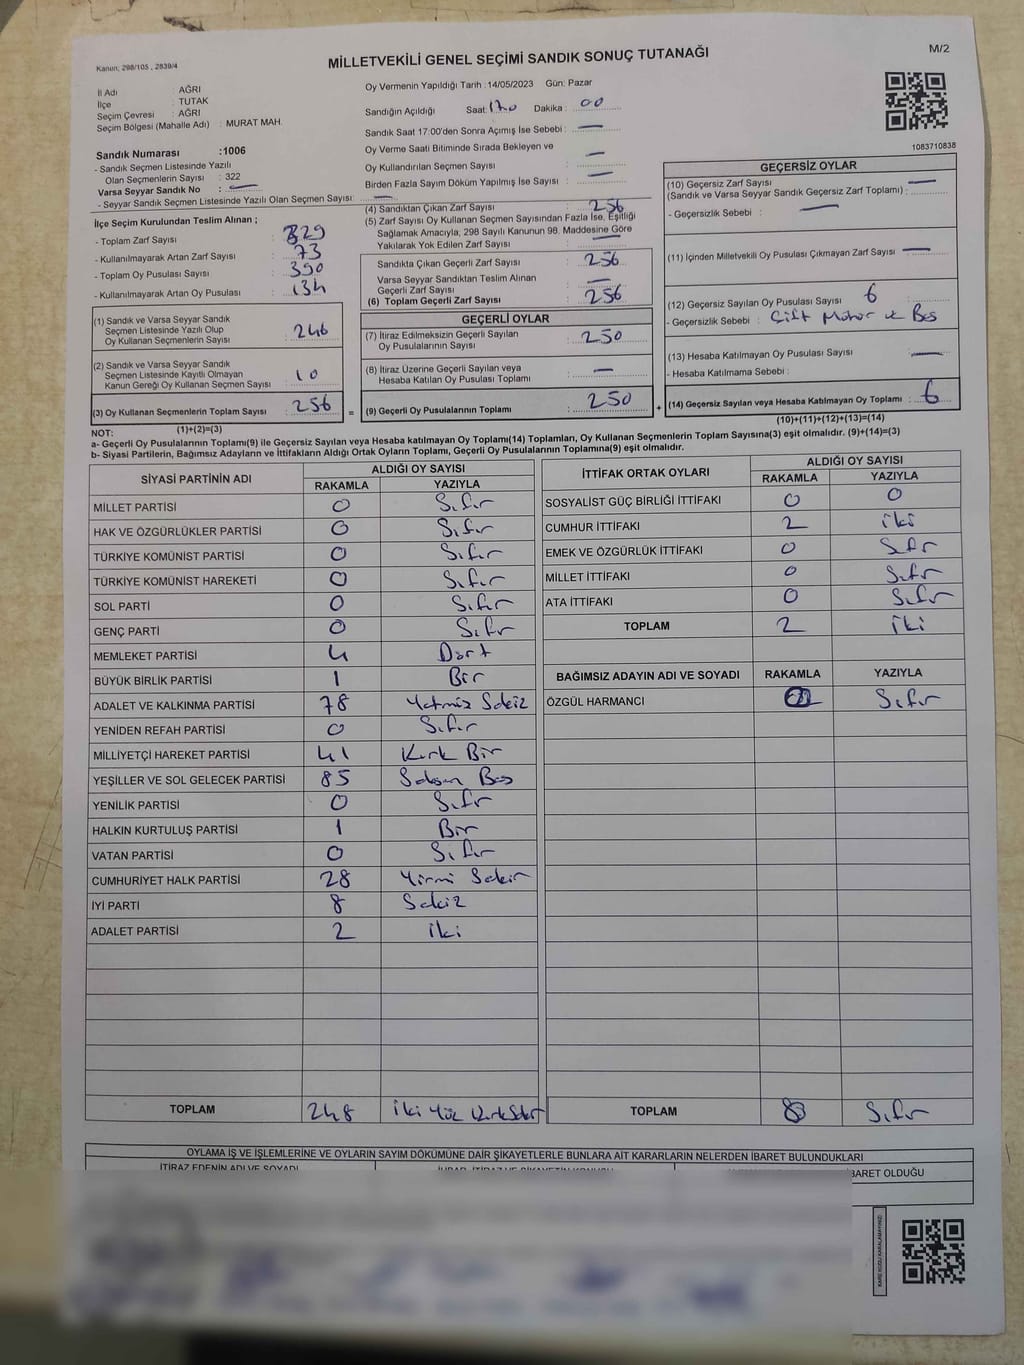 Kanun, 298/105 , 2839/4
MİLLETVEKİLİ GENEL SEÇİMİ SANDIK SONUÇ TUTANAĞI
M/2
İl Adı : AĞRI
İlçe : TUTAK
Seçim Çevresi : AĞRI
Seçim Bölgesi (Mahalle Adı) : MURAT MAH.
Oy Vermenin Yapıldığı Tarih :14/05/2023 Gün: Pazar
Sandığın Açıldığı Saat: Dakika : 00
Sandık Saat 17:00'den Sonra Açımış İse Sebebi : —
Oy Verme Saati Bitiminde Sırada Bekleyen ve
Oy Kullandırılan Seçmen Sayısı : —
Birden Fazla Sayım Döküm Yapılmış İse Sayısı : —
1083710838
Sandık Numarası :1006
- Sandık Seçmen Listesinde Yazılı
Olan Seçmenlerin Sayısı : 322
Varsa Seyyar Sandık No : —
- Seyyar Sandık Seçmen Listesinde Yazılı Olan Seçmen Sayısı : —
İlçe Seçim Kurulundan Teslim Alınan ;
- Toplam Zarf Sayısı : 329
- Kullanılmayarak Artan Zarf Sayısı : 73
- Toplam Oy Pusulası Sayısı : 390
- Kullanılmayarak Artan Oy Pusulası : 134
(1) Sandık ve Varsa Seyyar Sandık
Seçmen Listesinde Yazılı Olup
Oy Kullanan Seçmenlerin Sayısı : 246
(2) Sandık ve Varsa Seyyar Sandık
Seçmen Listesinde Kayıtlı Olmayan
Kanun Gereği Oy Kullanan Seçmen Sayısı : 10
(3) Oy Kullanan Seçmenlerin Toplam Sayısı : 256
(1)+(2)=(3)
(4) Sandıktan Çıkan Zarf Sayısı : 256
(5) Zarf Sayısı Oy Kullanan Seçmen Sayısından Fazla İse, Eşitliği
Sağlamak Amacıyla, 298 Sayılı Kanunun 98. Maddesine Göre
Yakılarak Yok Edilen Zarf Sayısı : —
Sandıkta Çıkan Geçerli Zarf Sayısı : 256
Varsa Seyyar Sandıktan Teslim Alınan
Geçerli Zarf Sayısı : —
(6) Toplam Geçerli Zarf Sayısı : 256
GEÇERLİ OYLAR
(7) İtiraz Edilmeksizin Geçerli Sayılan
Oy Pusulalarının Sayısı : 250
(8) İtiraz Üzerine Geçerli Sayılan veya
Hesaba Katılan Oy Pusulası Toplamı : —
= (9) Geçerli Oy Pusulalarının Toplamı : 250
GEÇERSİZ OYLAR
(10) Geçersiz Zarf Sayısı
(Sandık ve Varsa Seyyar Sandık Geçersiz Zarf Toplamı) : —
- Geçersizlik Sebebi : —
(11) İçinden Milletvekili Oy Pusulası Çıkmayan Zarf Sayısı : —
(12) Geçersiz Sayılan Oy Pusulası Sayısı : 6
- Geçersizlik Sebebi : Çift Mühür ve Boş
(13) Hesaba Katılmayan Oy Pusulası Sayısı : —
- Hesaba Katılmama Sebebi :
+ (14) Geçersiz Sayılan veya Hesaba Katılmayan Oy Toplamı : 6
(10)+(11)+(12)+(13)=(14)
NOT:
a- Geçerli Oy Pusulalarının Toplamı(9) ile Geçersiz Sayılan veya Hesaba katılmayan Oy Toplamı(14) Toplamları, Oy Kullanan Seçmenlerin Toplam Sayısına(3) eşit olmalıdır. (9)+(14)=(3)
b- Siyasi Partilerin, Bağımsız Adayların ve İttifakların Aldığı Ortak Oyların Toplamı, Geçerli Oy Pusulalarının Toplamına(9) eşit olmalıdır.
SİYASİ PARTİNİN ADI ALDIĞI OY SAYISI
RAKAMLA YAZIYLA
MİLLET PARTİSİ 0 Sıfır
HAK VE ÖZGÜRLÜKLER PARTİSİ 0 Sıfır
TÜRKİYE KOMÜNİST PARTİSİ 0 Sıfır
TÜRKİYE KOMÜNİST HAREKETİ 0 Sıfır
SOL PARTİ 0 Sıfır
GENÇ PARTİ 0 Sıfır
MEMLEKET PARTİSİ 4 Dört
BÜYÜK BİRLİK PARTİSİ 1 Bir
ADALET VE KALKINMA PARTİSİ 78 Yetmiş Sekiz
YENİDEN REFAH PARTİSİ 0 Sıfır
MİLLİYETÇİ HAREKET PARTİSİ 41 Kırk Bir
YEŞİLLER VE SOL GELECEK PARTİSİ 85 Seksen Beş
YENİLİK PARTİSİ 0 Sıfır
HALKIN KURTULUŞ PARTİSİ 1 Bir
VATAN PARTİSİ 0 Sıfır
CUMHURİYET HALK PARTİSİ 28 Yirmi Sekiz
İYİ PARTİ 8 Sekiz
ADALET PARTİSİ 2 İki
TOPLAM 248 İki Yüz Kırk Sekiz
İTTİFAK ORTAK OYLARI ALDIĞI OY SAYISI
RAKAMLA YAZIYLA
SOSYALİST GÜÇ BİRLİĞİ İTTİFAKI 0 0
CUMHUR İTTİFAKI 2 İki
EMEK VE ÖZGÜRLÜK İTTİFAKI 0 Sıfır
MİLLET İTTİFAKI 0 Sıfır
ATA İTTİFAKI 0 Sıfır
TOPLAM 2 İki
BAĞIMSIZ ADAYIN ADI VE SOYADI RAKAMLA YAZIYLA
ÖZGÜL HARMANCI Sıfır
TOPLAM Sıfır
OYLAMA İŞ VE İŞLEMLERİNE VE OYLARIN SAYIM DÖKÜMÜNE DAİR ŞİKAYETLERLE BUNLARA AİT KARARLARIN NELERDEN İBARET BULUNDUKLARI
İTİRAZ EDENİN ADI VE SOYADI
İBARET OLDUĞU
KARE KODU KARALAMAYINIZ!